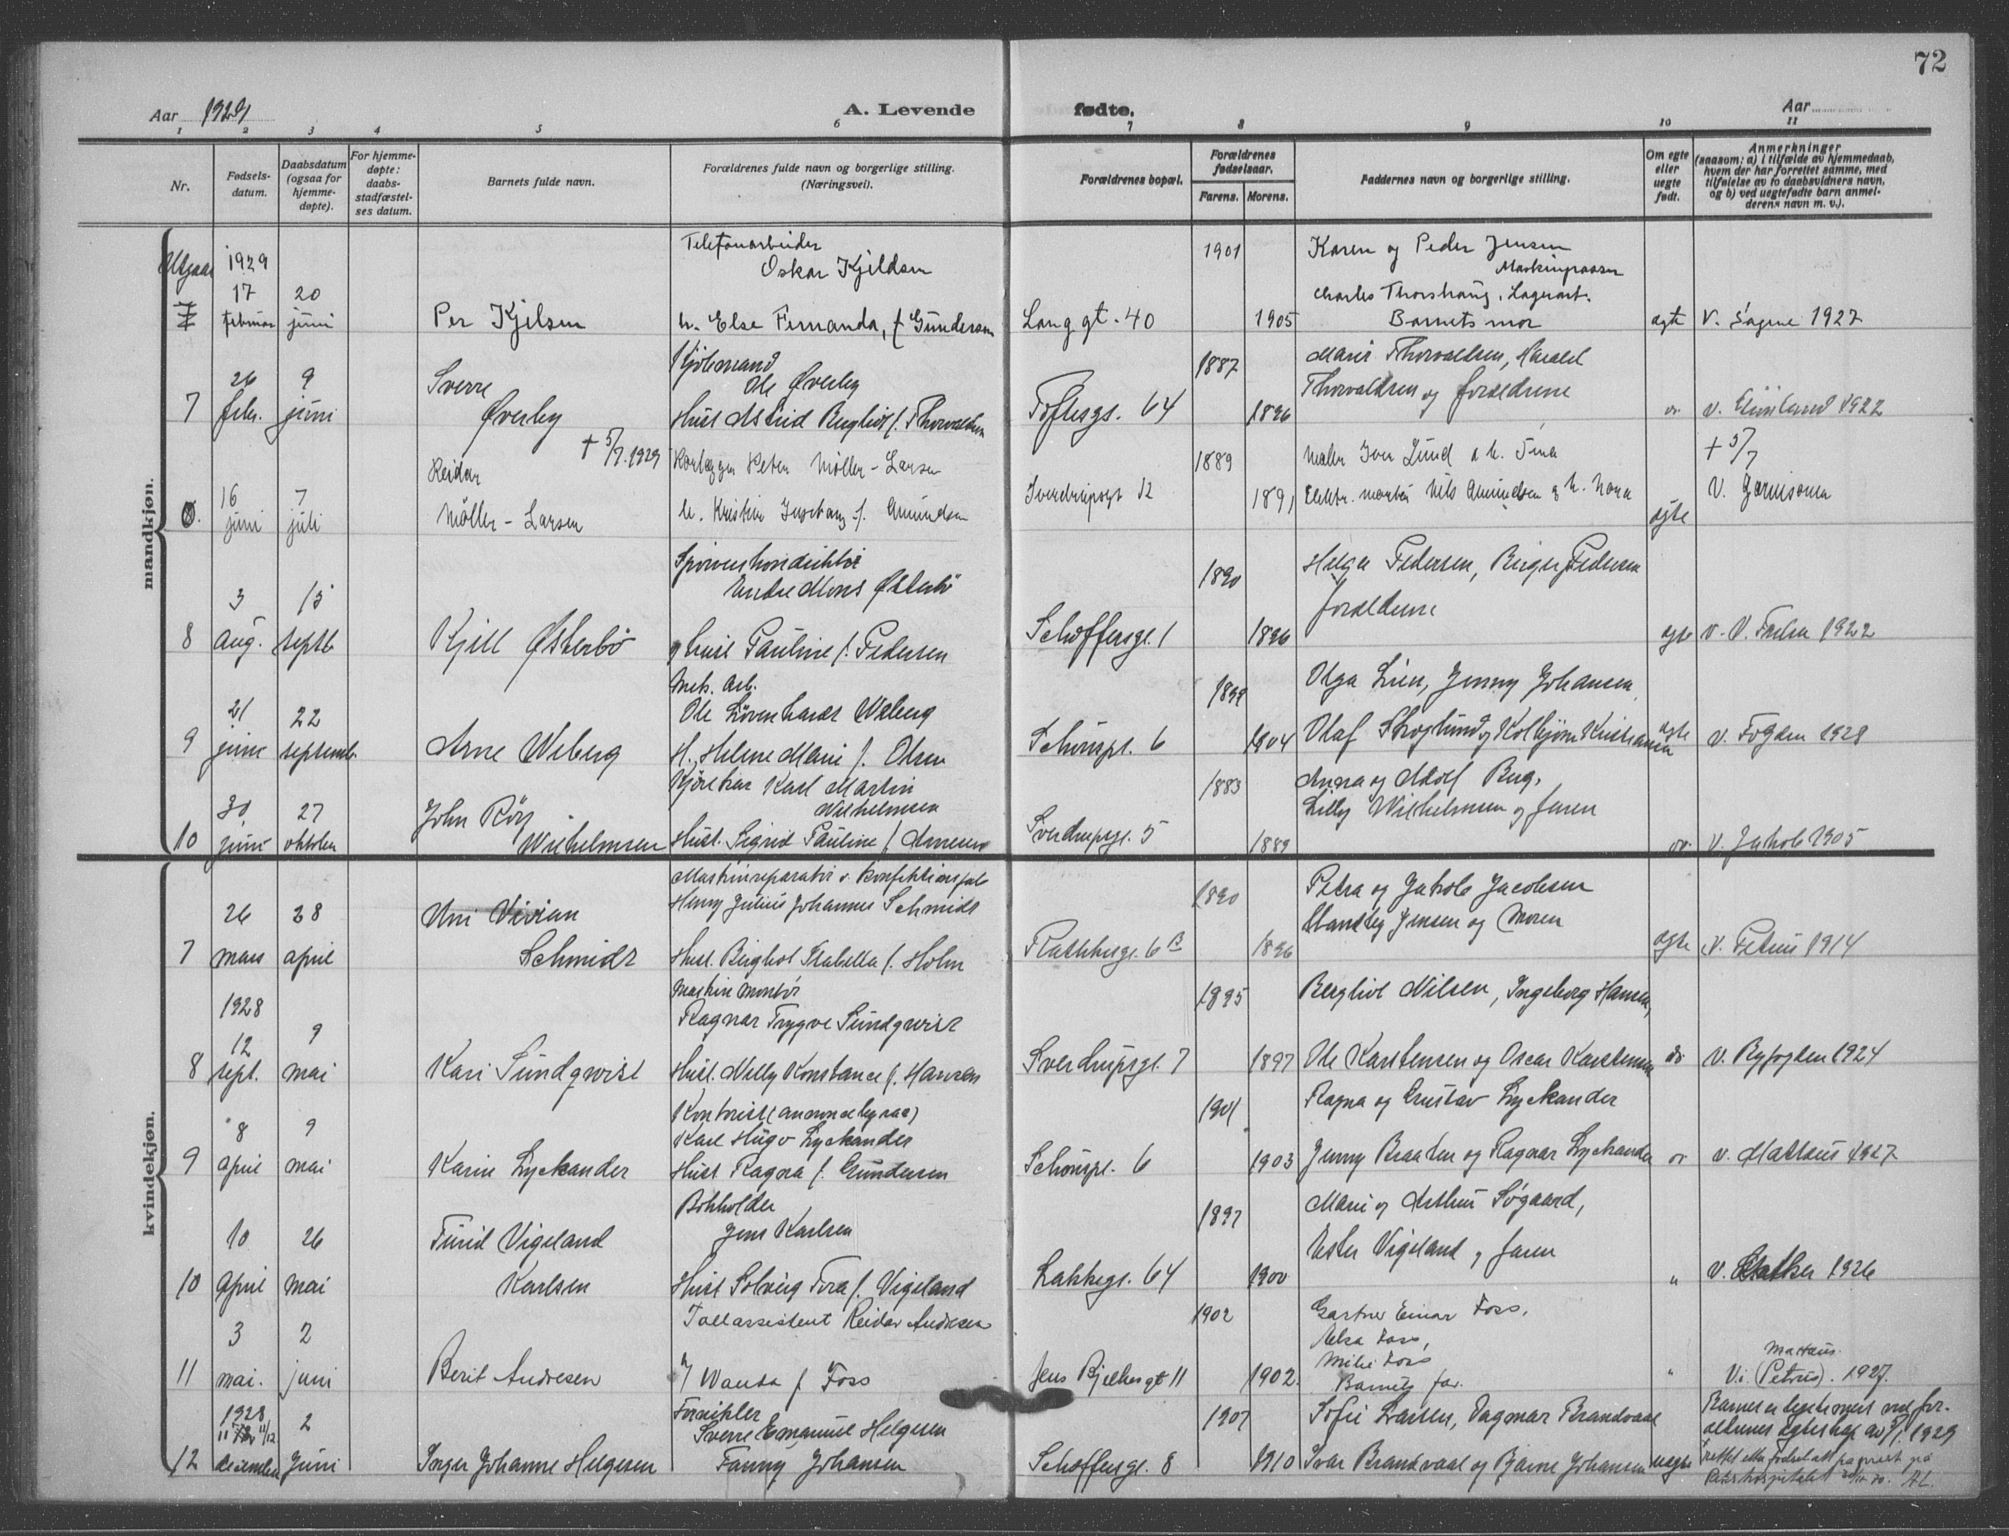 72
Aar 1929
A. Levende fødte.
Aar
1 2 3 4 5 6 7 8 9 10 11
Nr.
Fødsels-
datum.
Daabsdatum
(ogsaa for
hjemme-
døpte).
For hjemme-
døpte:
daabs-
stadfæstel-
ses datum.
Barnets fulde navn.
Forældrenes fulde navn og borgerlige stilling.
(Næringsvei).
Forældrenes bopæl.
Forældrenes
fødselsaar.
Farens. Morens.
Faddernes navn og borgerlige stilling.
Om egte
eller
uegte
født.
Anmerkninger
(saasom: a) i tilfælde av hjemmedaab,
hvem der har forrettet samme, med
tilføielse av to daabsvidners navn,
og b) ved uegtefødte barn anmel-
derens navn m. v.).
mandkjøn.
Utgaar 1929
17 20
februar juni
Per Kjelsen
Telefonarbeider
Oskar Kjeldsen
h. Else Fernanda, f Gundersen
Langgt. 40
1901
1905
Karen og Peder Jensen
Charles Thorshaug, Lagerarb.
Barnets mor
egte
V. Sagene 1927
7
26 9
febr. juni
Sverre
Øverby
Ole Øverby
Hust Astrid Berghiot f. Thorvaldsen
Toftesgt. 64
1887
1896
Marie Thorvaldsen, Harald
Thorvaldsen og forældrene
V. Grønland 1922
16 7
juni juli
Reidar
Møller-Larsen
+ 5/7.1929
Peter Møller-Larsen
h. Kristine Ingeborg f. Amundsen
Sverdrupsgt 12
1889
1891
Maler Iver Lund & h. Tina
Elektr. montør Nils Amundsen & h. Nora
egte
+ 5/7
V. Garnisonen
8
3 15
aug. septb
Kjell Østerbø
Sporveiskonduktør
Andre Mons Østerbø
og hust Pauline f. Pedersen
Schøffersgt. 1
1890
1896
Helga Pedersen, Birger Pedersen
forældrene
egte
V. V. Frelser 1922
9
21 22
juni septemb.
Arne Wiberg
Mek. Arb.
Ole Løvenhardt Wiberg
H. Helene Marie f. Olsen
Schouspl. 6
1899
1904
Olga Lien, Jenny Johansen,
Olaf Skoglund og Kolbjørn Kristiansen
egte
V. Fogden 1928
10
30 27
juni oktober
John Roy
Wilhelmsen
Kjørekar Karl Martin
Wilhelmsen
Hust. Sigrid Pauline f Arnesen
Sverdrupsgt. 5
1883
1889
Anna og Adolf Berg,
Lilly Wilhelmsen og faren
V. Jakob 1905
kvindekjøn.
7
26 28
mars april
Uni Vivian
Schmidt
Maskinreparatør v. konfektionsfab
Henry Julius Johannes Schmidt
Hust. Berghot Isabella f. Holm
Rathkesgt. 6 B
1890
1896
Petra og Jakob Jacobsen
Stanley Jensen og Moren
egte
V. Petrus 1914
8
1928
12 9
sept. mai
Kari Sundqwist
Maskin montør
Ragnar Trygve Sundqwist
Hust. Nelly Konstance f. Hansen
Sverdrupsgt. 7
1895
1897
Berghiot Nilsen, Ingeborg Hansen,
Ole Karstensen og Oscar Karstensen
do
V. Byfogden 1924
9
8 9
april mai
Karin Lyckander
Kontorist (annoncebyraa)
Karl Hugo Lyckander
Hust Ragna f. Gundersen
Schouspl. 6
1901
1903
Ragna og Gustav Lyckander
Jenny Braaten og Ragnar Lyckander
V. Mattæus 1927
10
10 26
april mai
Turid Vigeland
Karlsen
Bokholder
Jens Karlsen
Hust Solveig Tora f. Vigeland
Lakkegt. 64
1897
1900
Marie og Arthur Søgaard,
Ester Vigeland og faren
"
V. 1926
11
3 2
mai. juni
Berit Andresen
Tollassistent Reidar Andresen
Wanda f Foss
Jens Bjelkesgt 11
1902
1902.
Gartner Einar Foss,
Elsa Foss,
Milie Foss
Barnets far.
"
Mattæus.
V. i (Petrus). 1927.
12
1928
11/12
2
desember juni
Inger Johanne Helgesen
Fornikler
Sverre Emanuel Helgesen
Fanny Johansen
Schøffersgt. 8
1907
1910
Sofie Larsen, Dagmar Brandvaal
Ivar Brandvaal og Bjarne Johansen
uegte
Barnet er legitimert ved for-
ældrenes egteskap av 1929
rettet efter fødselsatt